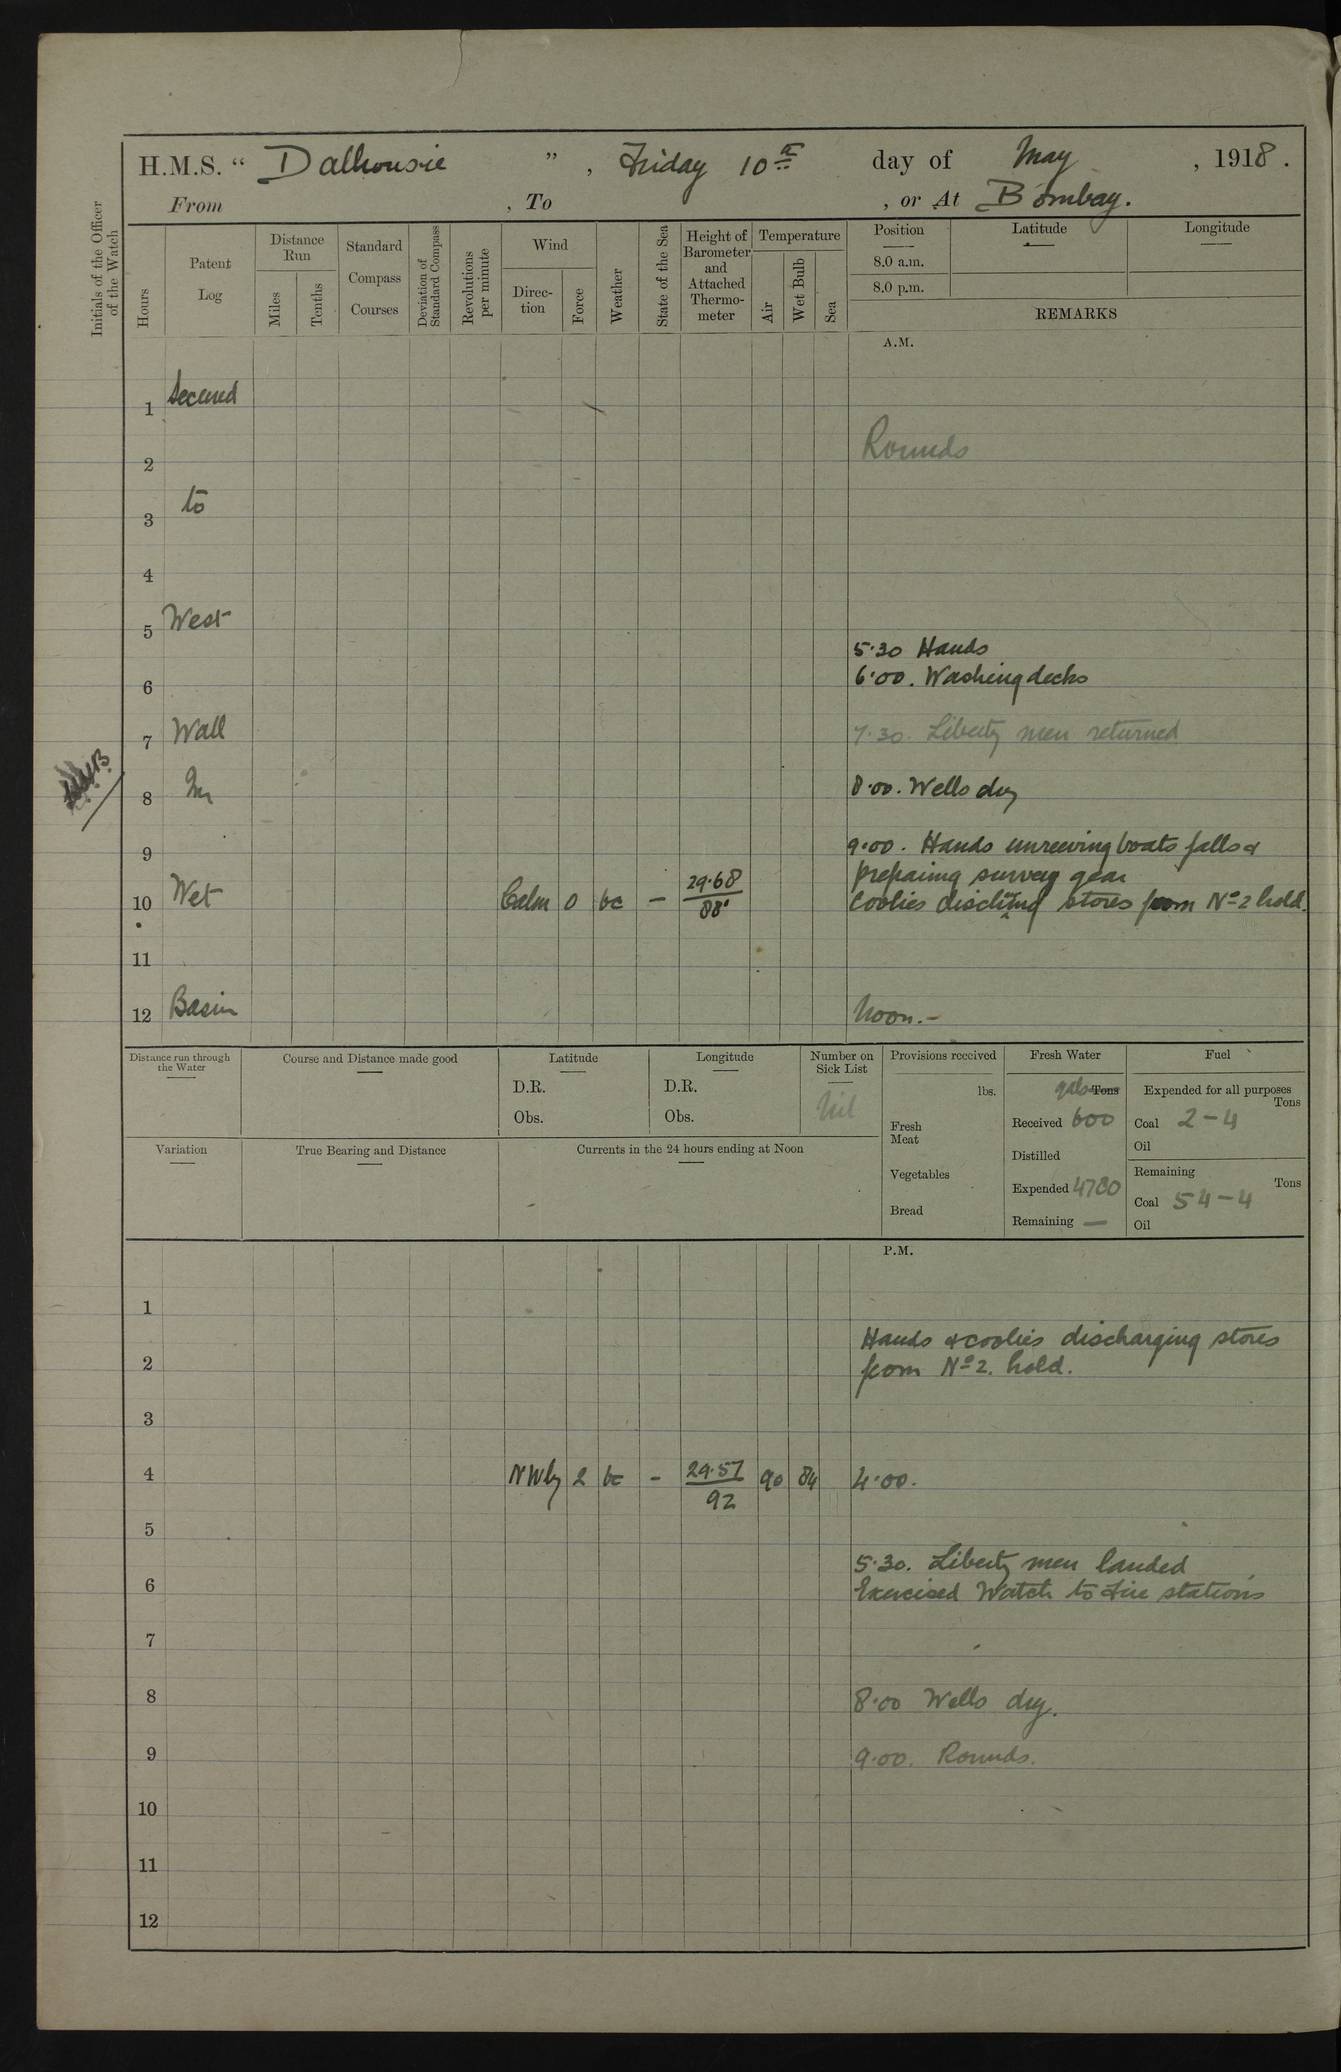 H.M.S. " Dalhousie ", Friday 10th day of May, 1918.
From , To , or At Bombay.
Initials of the Officer of the Watch
Hours
Patent Log
Distance Run
Miles
Tenths
Standard Compass Courses
Deviation of Standard Compass
Revolutions per minute
Wind
Direction
Force
Weather
State of the Sea
Height of Barometer and Attached Thermometer
Temperature
Air
Wet Bulb
Sea
Position
8.0 a.m.
8.0 p.m.
Latitude
Longitude
REMARKS
A.M.
1 Secured
2 Rounds
3 to
4
5 West
5.30 Hands
6 6.00. Washing decks
7 Wall 7.30. Liberty men returned
8 In 8.00. Wells dry
9 9.00. Hands unreeving boats falls &
preparing survey gear
10 Wet Calm 0 bc - 29.68 / 88° Coolies stores from No 2 hold.
11
12 Basin Noon.-
Distance run through the Water
Course and Distance made good
Latitude
D.R.
Obs.
Longitude
D.R.
Obs.
Number on Sick List
Nil
Variation
True Bearing and Distance
Currents in the 24 hours ending at Noon
Provisions received
lbs.
Fresh Meat
Vegetables
Bread
Fresh Water
gals Tons
Received 600
Distilled
Expended 4780
Remaining —
Fuel
Expended for all purposes
Tons
Coal 2-4
Oil
Remaining
Tons
Coal 54-4
Oil
P.M.
1
Hands & coolies discharging stores
2 from No 2. hold.
3
4 NWly 2 bc - 29.57 / 92 90 84 4.00.
5
5.30. Liberty men landed
6 Exercised Watch to Fire stations
7
8 8.00 Wells dry.
9 9.00. Rounds.
10
11
12